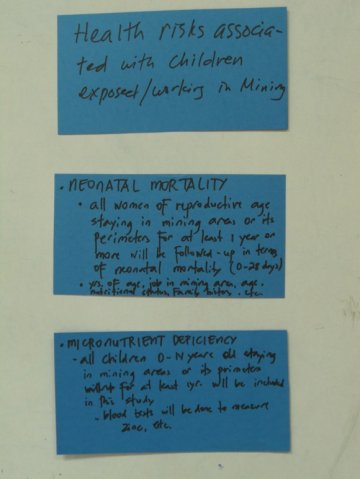 Health risks associa-
ted with children
exposed/working in Mining
• NEONATAL MORTALITY
• all women of reproductive age
staying in mining areas or its
perimeters for at least 1 year or
more will be followed-up in terms
of neonatal mortality (0-28 days)
• yrs. of age, job in mining area, age,
nutritional status, family history, etc.
• MICRONUTRIENT DEFICIENCY
- all children 0-N years old staying
in mining areas or its perimeter
for at least 1yr. will be included
in this study
- blood tests will be done to measure
Zinc, etc.